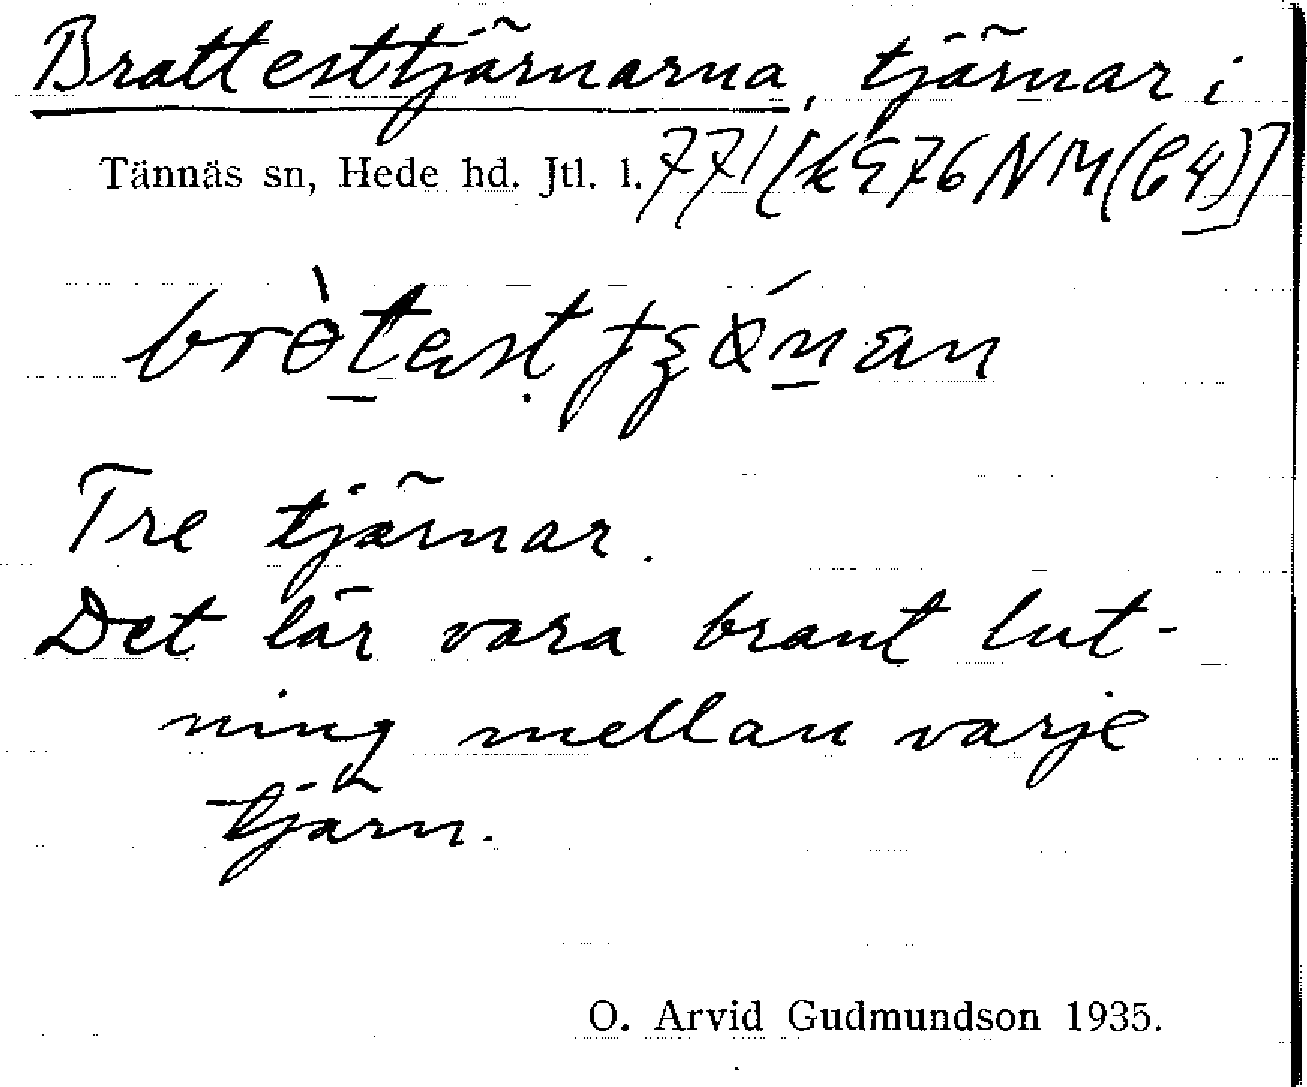 Brattesttjärnarna, tjärnar i
Tännäs sn, Hede hd. Jtl. l. 771
Tre tjärnar.
Det lär vara brant lut-
ning mellan varje
tjärn.
O. Arvid Gudmundson 1935.